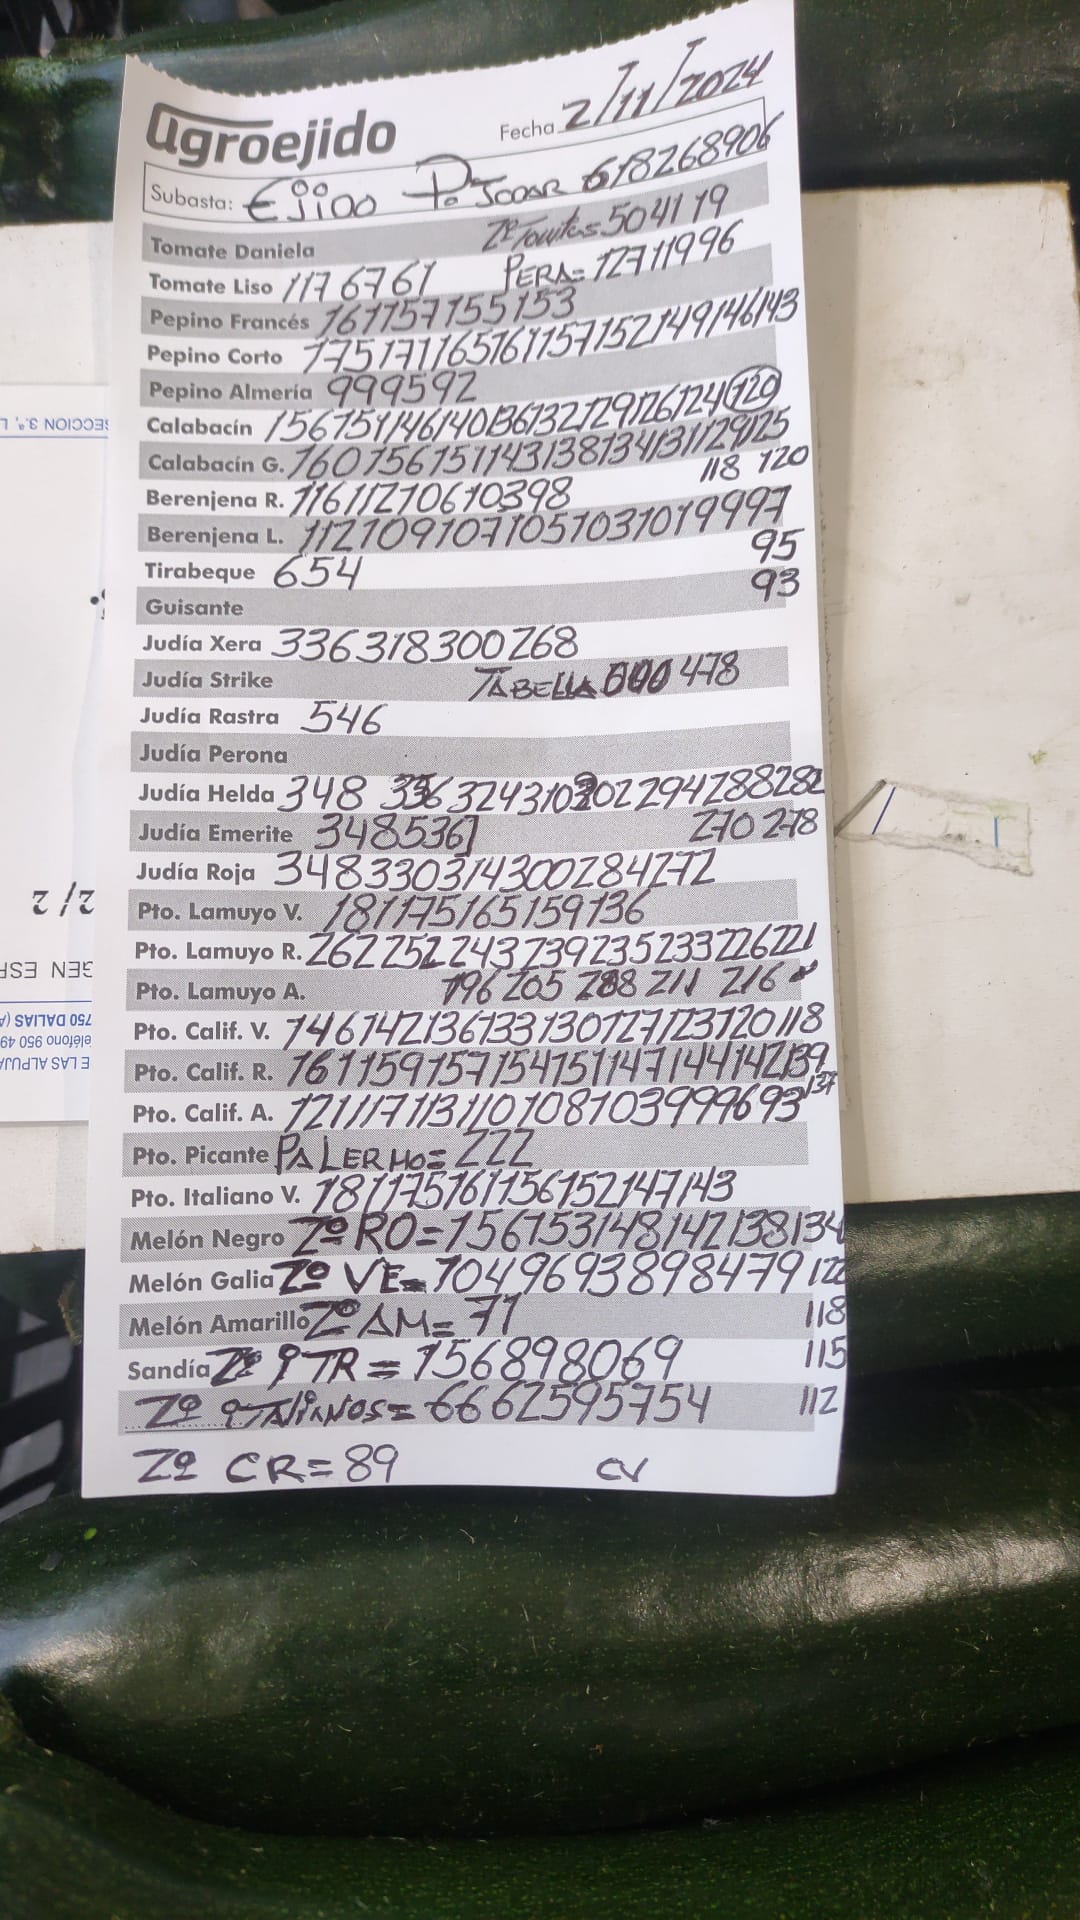 agroejido
Fecha 2/11/2024
Subasta: Ejido P. Jodar 618268906
Tomate Daniela 2º Touitas 504119
Tomate Liso 1176761 PERA=12711996
Pepino Francés 161157155153
Pepino Corto 175171165161157152149146143
Pepino Almería 999592
Calabacín 156151146140136132129126124 120
Calabacín G. 160156151143138134131129125
118 120
Berenjena R. 11611210610398
Berenjena L. 1121091071051031019997
95
Tirabeque 654
93
Guisante
Judía Xera 336318300268
Judía Strike TABELLA 600 478
Judía Rastra 546
Judía Perona
Judía Helda 348 336324310302294288282
Judía Emerite 348536 270 278
Judía Roja 348330314300284272
Pto. Lamuyo V. 181175165159136
Pto. Lamuyo R. 262252243239235233226221
Pto. Lamuyo A. 196 205 208 211 216
Pto. Calif. V. 146142136133130127123120118
Pto. Calif. R. 161159157154151147144142139
137
Pto. Calif. A. 121117113110108103999693
Pto. Picante PALERMO= 222
Pto. Italiano V. 181175161156152147143
Melón Negro 2º RO=156153148142138134
Melón Galia 2º VE=1049693898479 122
Melón Amarillo 2º AM= 71 118
Sandía 2º TR = 156898069 115
2º ITALIANOS= 6662595754 112
2º CR= 89 CV
SECCION 3.ª, L
2/2
GEN ESP
750 DALIAS (A
eléfono 950 49
E LAS ALPUJA